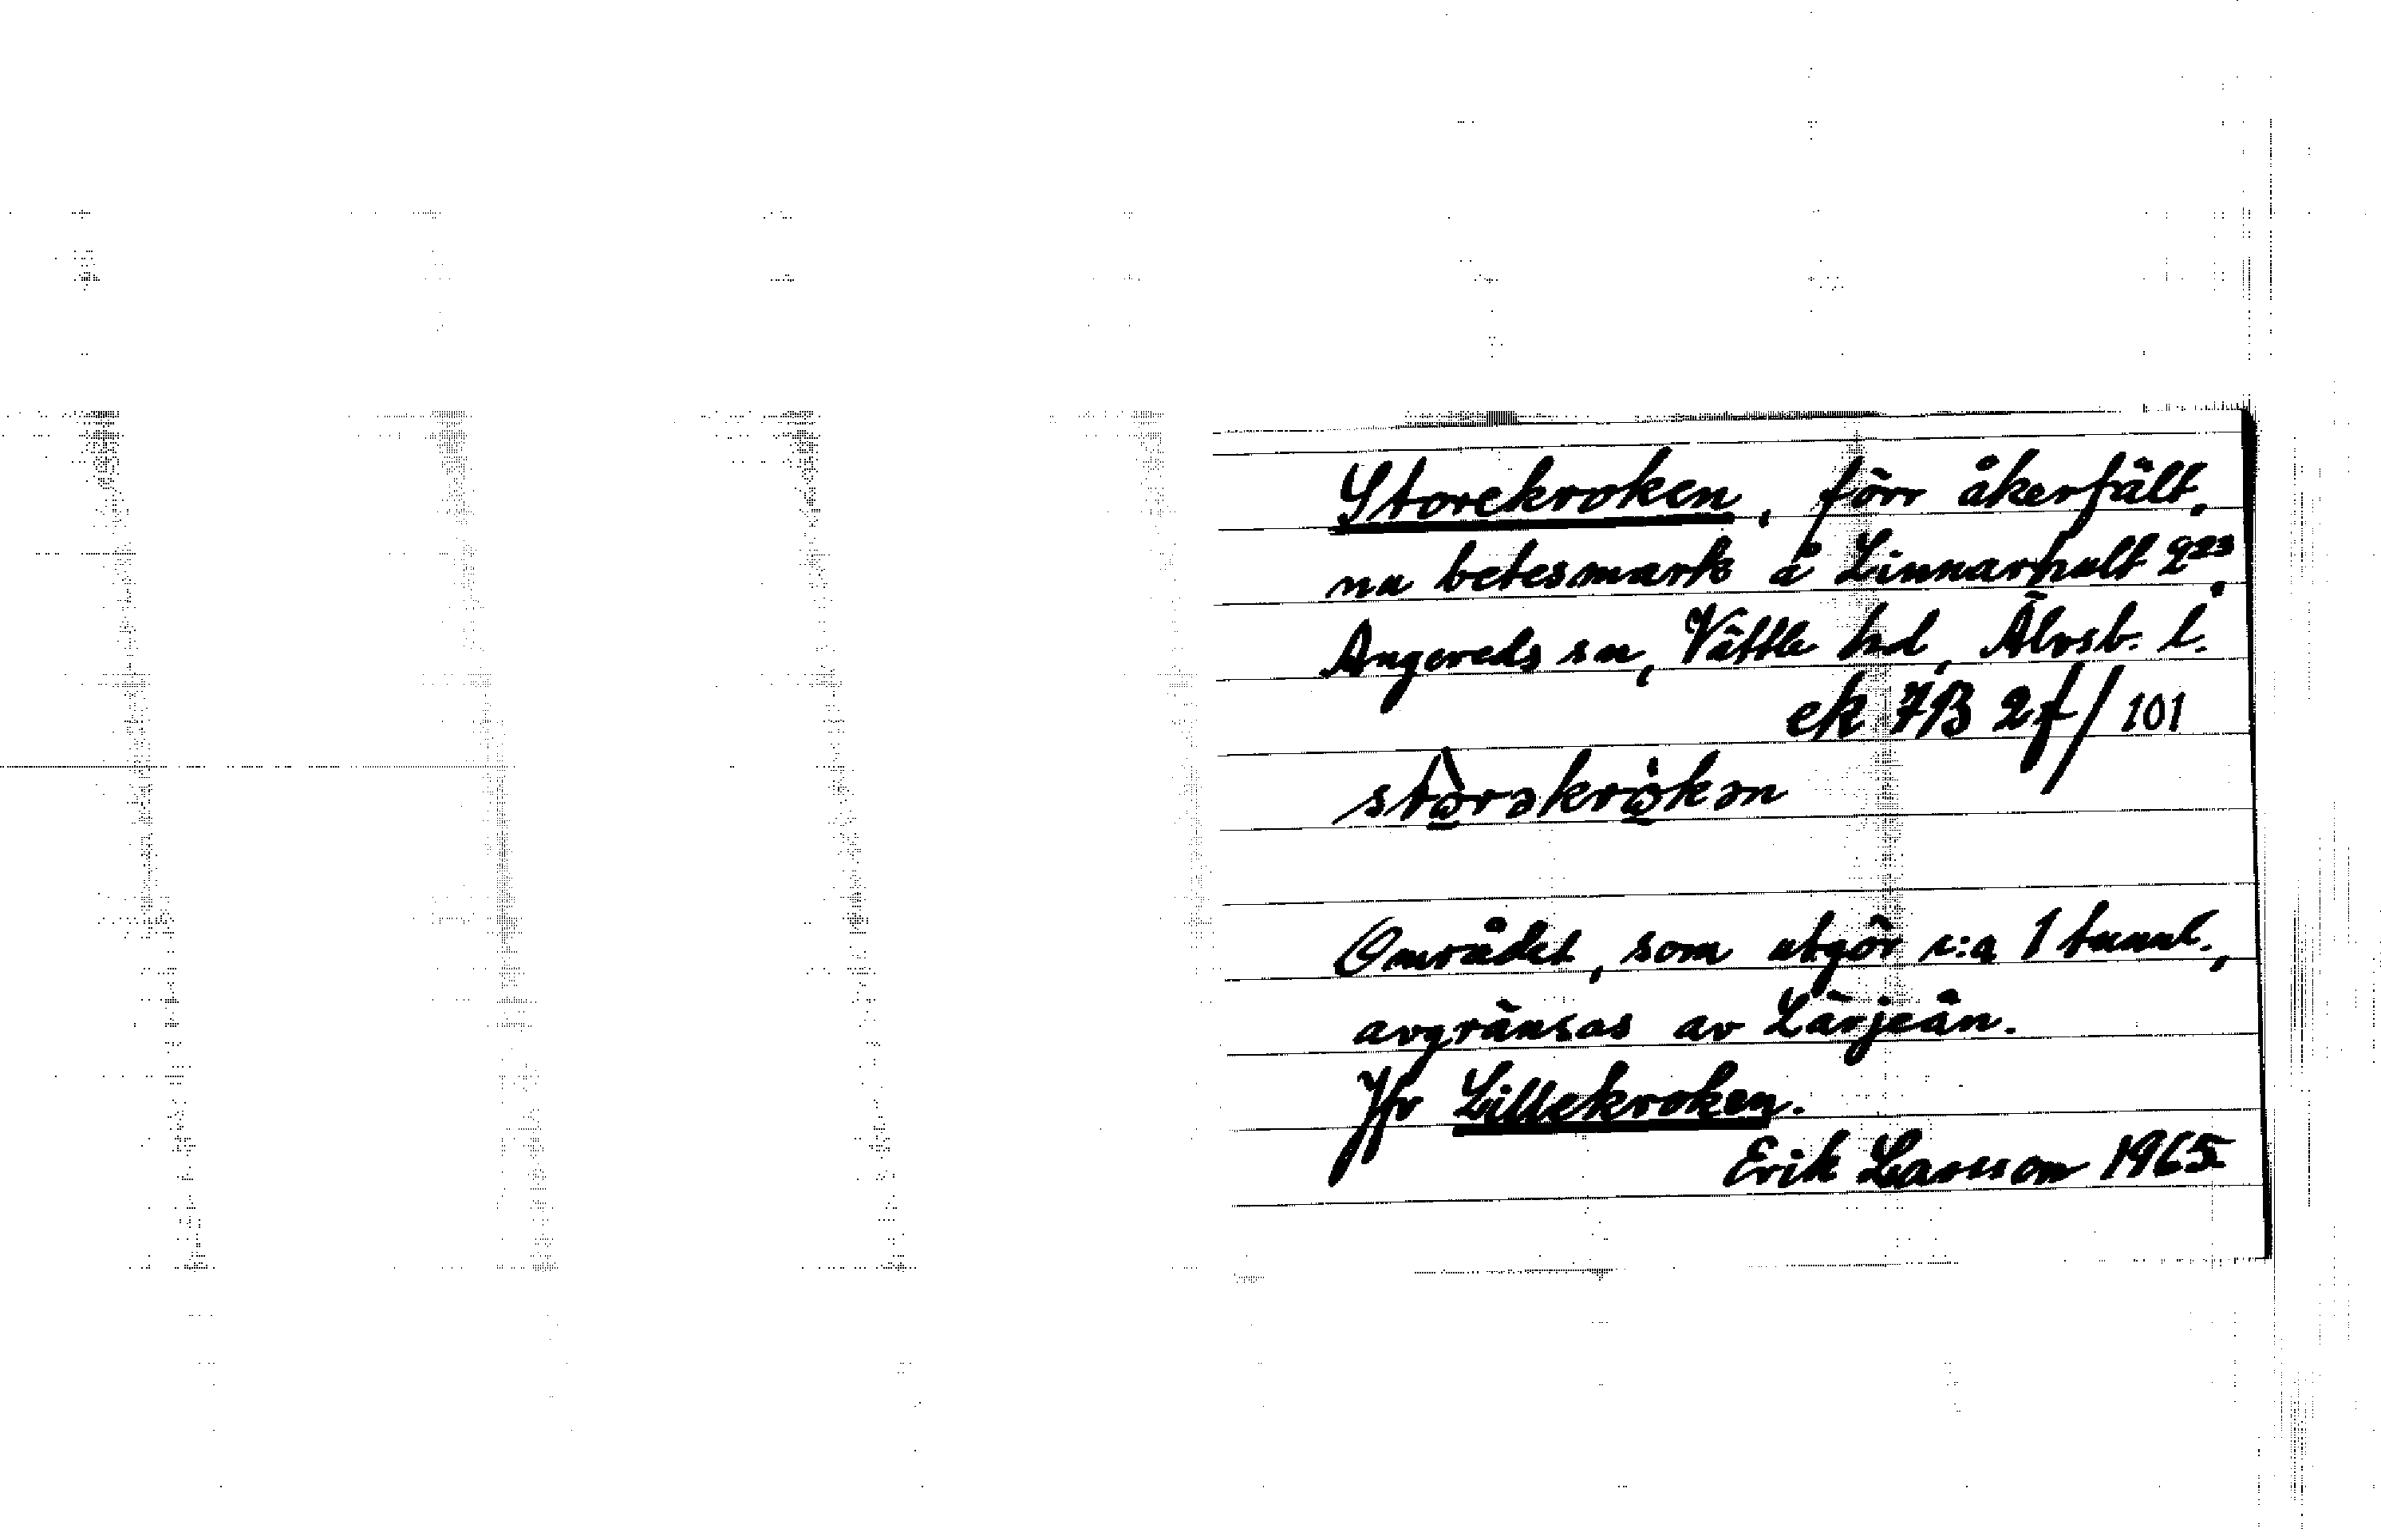 Storekroken, förr åkerfält,
nu betesmark å Linnarhult 9²³,
Angereds sn, Vättle hd, Älvsb. l.
ek 7B 2f/101
stòrəkròkən
Området, som utgör c:a 1 tunnl.,
avgränsas av Lärjeån.
Jfr Lillekroken.
Erik Larsson 1965